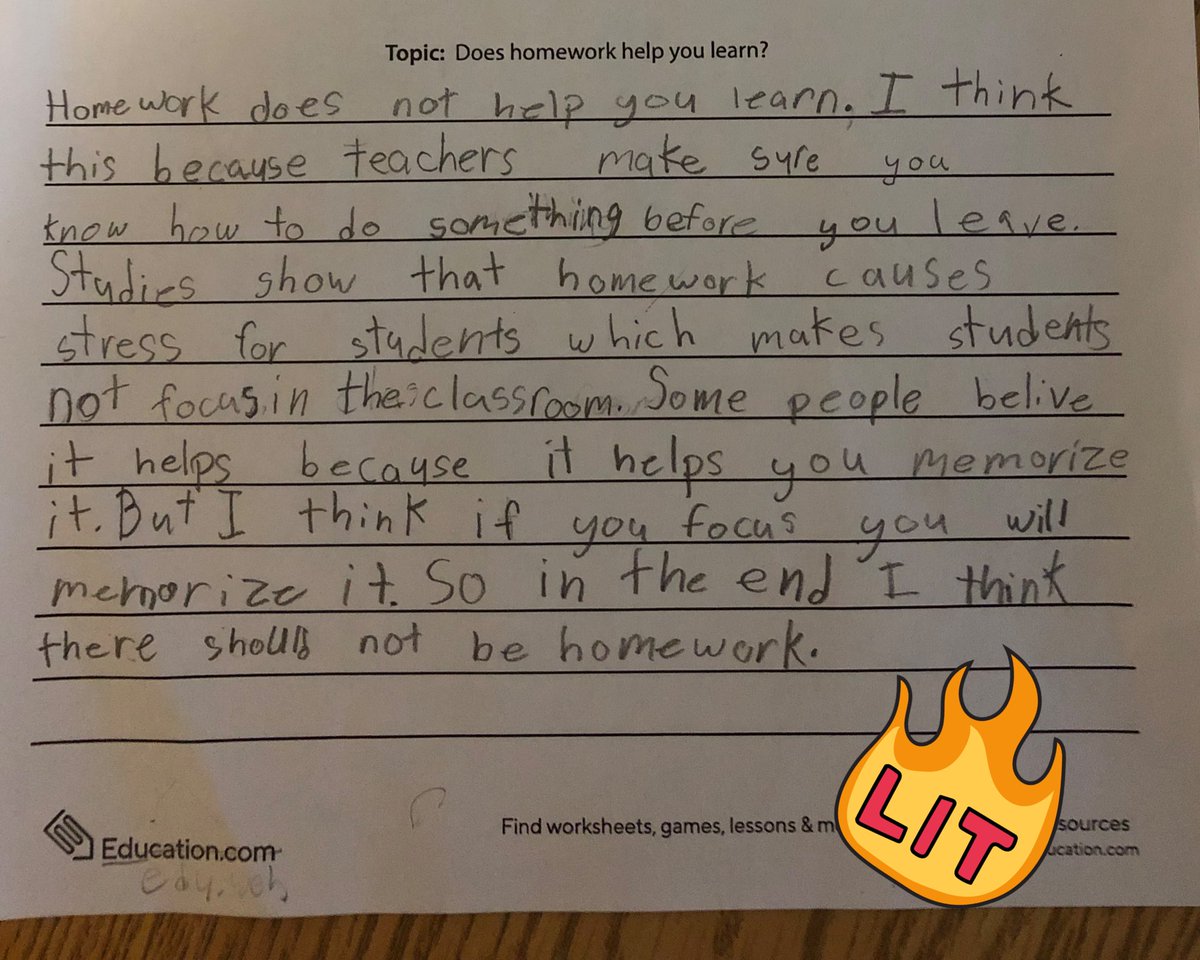 Topic: Does homework help you learn?
Homework does not help you learn. I think
this because teachers make sure you
know how to do something before you leave.
Studies show that homework causes
stress for students which makes students
not focus in the classroom. Some people belive
it helps because it helps you memorize
it. But I think if you focus you will
memorize it. So in the end I think
there should not be homework.
Find worksheets, games, lessons & m
sources
Education.com
ucation.com
LIT